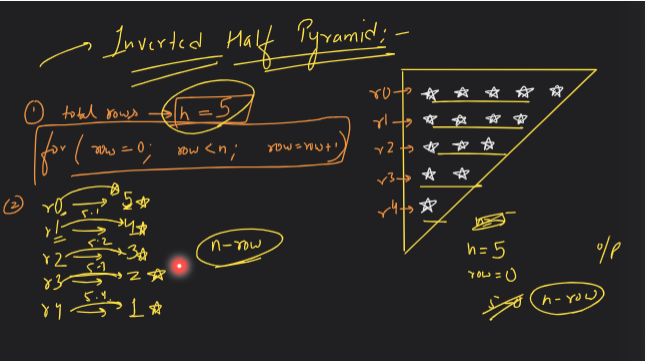 Inverted Half Pyramid:-
① total rows → n = 5
for ( row = 0; row < n; row = row+1 )
② r0 → 5 ☆
r1 5-1 → 4 ☆
r2 5-2 → 3 ☆
r3 5-3 → 2 ☆
r4 5-4 → 1 ☆
n-row
r0 → ☆ ☆ ☆ ☆ ☆
r1 → ☆ ☆ ☆ ☆
r2 → ☆ ☆ ☆
r3 → ☆ ☆
r4 → ☆
n = 5
row = 0
5-0 n-row
o/p